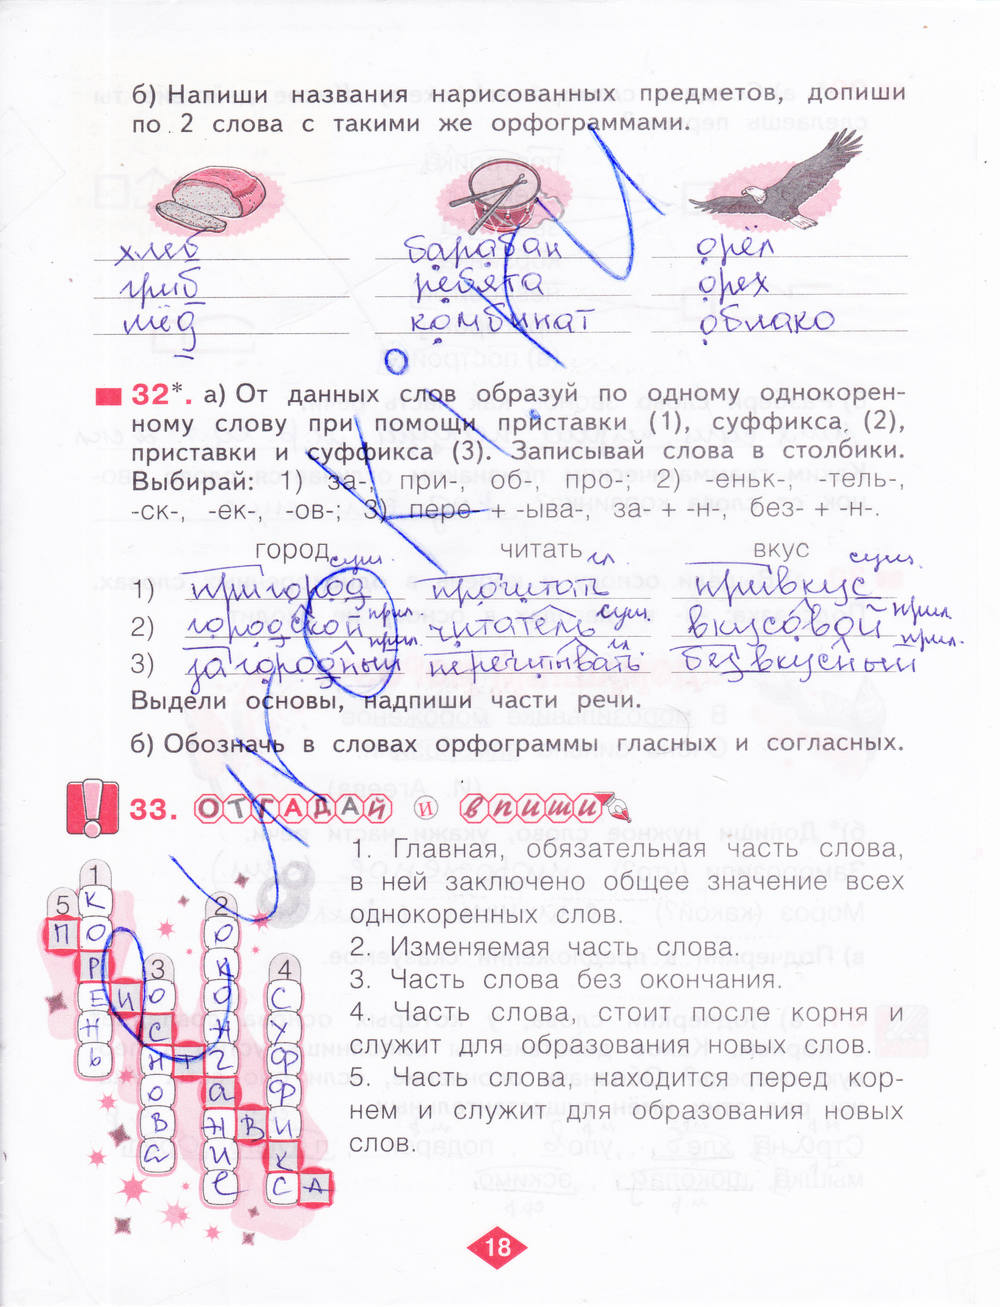 б) Напиши названия нарисованных предметов, допиши
по 2 слова с такими же орфограммами.
хлеб барабан орёл
гриб ребята орех
мёд комбинат облако
32*. а) От данных слов образуй по одному однокорен-
ному слову при помощи приставки (1), суффикса (2),
приставки и суффикса (3). Записывай слова в столбики.
Выбирай: 1) за-, при-, об-, про-; 2) -еньк-, -тель-,
-ск-, -ек-, -ов-; 3) пере- + -ыва-, за- + -н-, без- + -н-.
город сущ. читать гл вкус сущ.
1) пригород прочитать привкус
2) городской прил. читатель сущ. вкусовой прил
3) загородный прил. перечитывать гл. безвкусный прил.
Выдели основы, надпиши части речи.
б) Обозначь в словах орфограммы гласных и согласных.
33. ОТГАДАЙ И впиши
1. Главная, обязательная часть слова,
в ней заключено общее значение всех
однокоренных слов.
2. Изменяемая часть слова.
3. Часть слова без окончания.
4. Часть слова, стоит после корня и
служит для образования новых слов.
5. Часть слова, находится перед кор-
нем и служит для образования новых
слов.
1
5 К 2
П О О
Р 3 К 4
Е И О О С
Н С Н У
Ь Н Т Ч Ф
О а Ф
В Н В И
а И К
Е С А
18